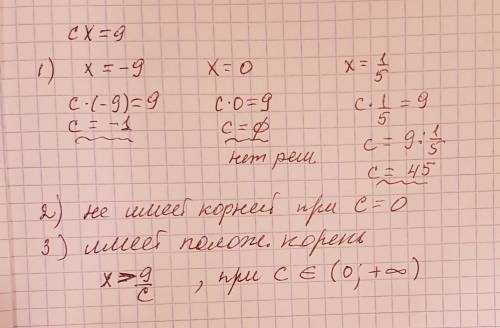 cx=9
1) x=-9 x=0 x=1/5
c·(-9)=9 c·0=9 c·1/5=9
c=-1 c=∅ c=9:1/5
нет реш c=45
2) не имеет корней при c=0
3) имеет полож. корень
x>9/c, при c∈(0;+∞)